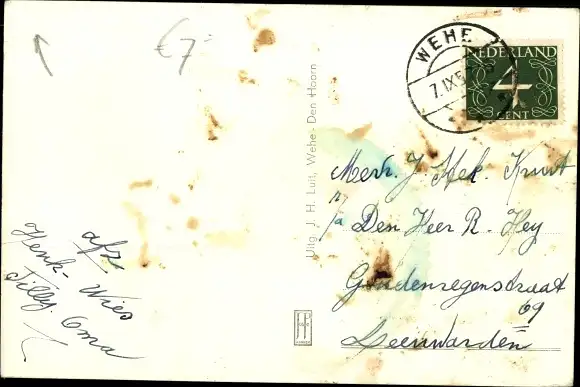 €7-
WEHE
7.IX.5
NEDERLAND
4
CENT
Uitg. J. H. Luit, Wehe-Den Hoorn
Mevr. J. Hek. Kruit
p/a Den Heer R. Hey
Goudenregenstraat
69
Leeuwarden
afz
Henk - Wies
Tilly. Oma